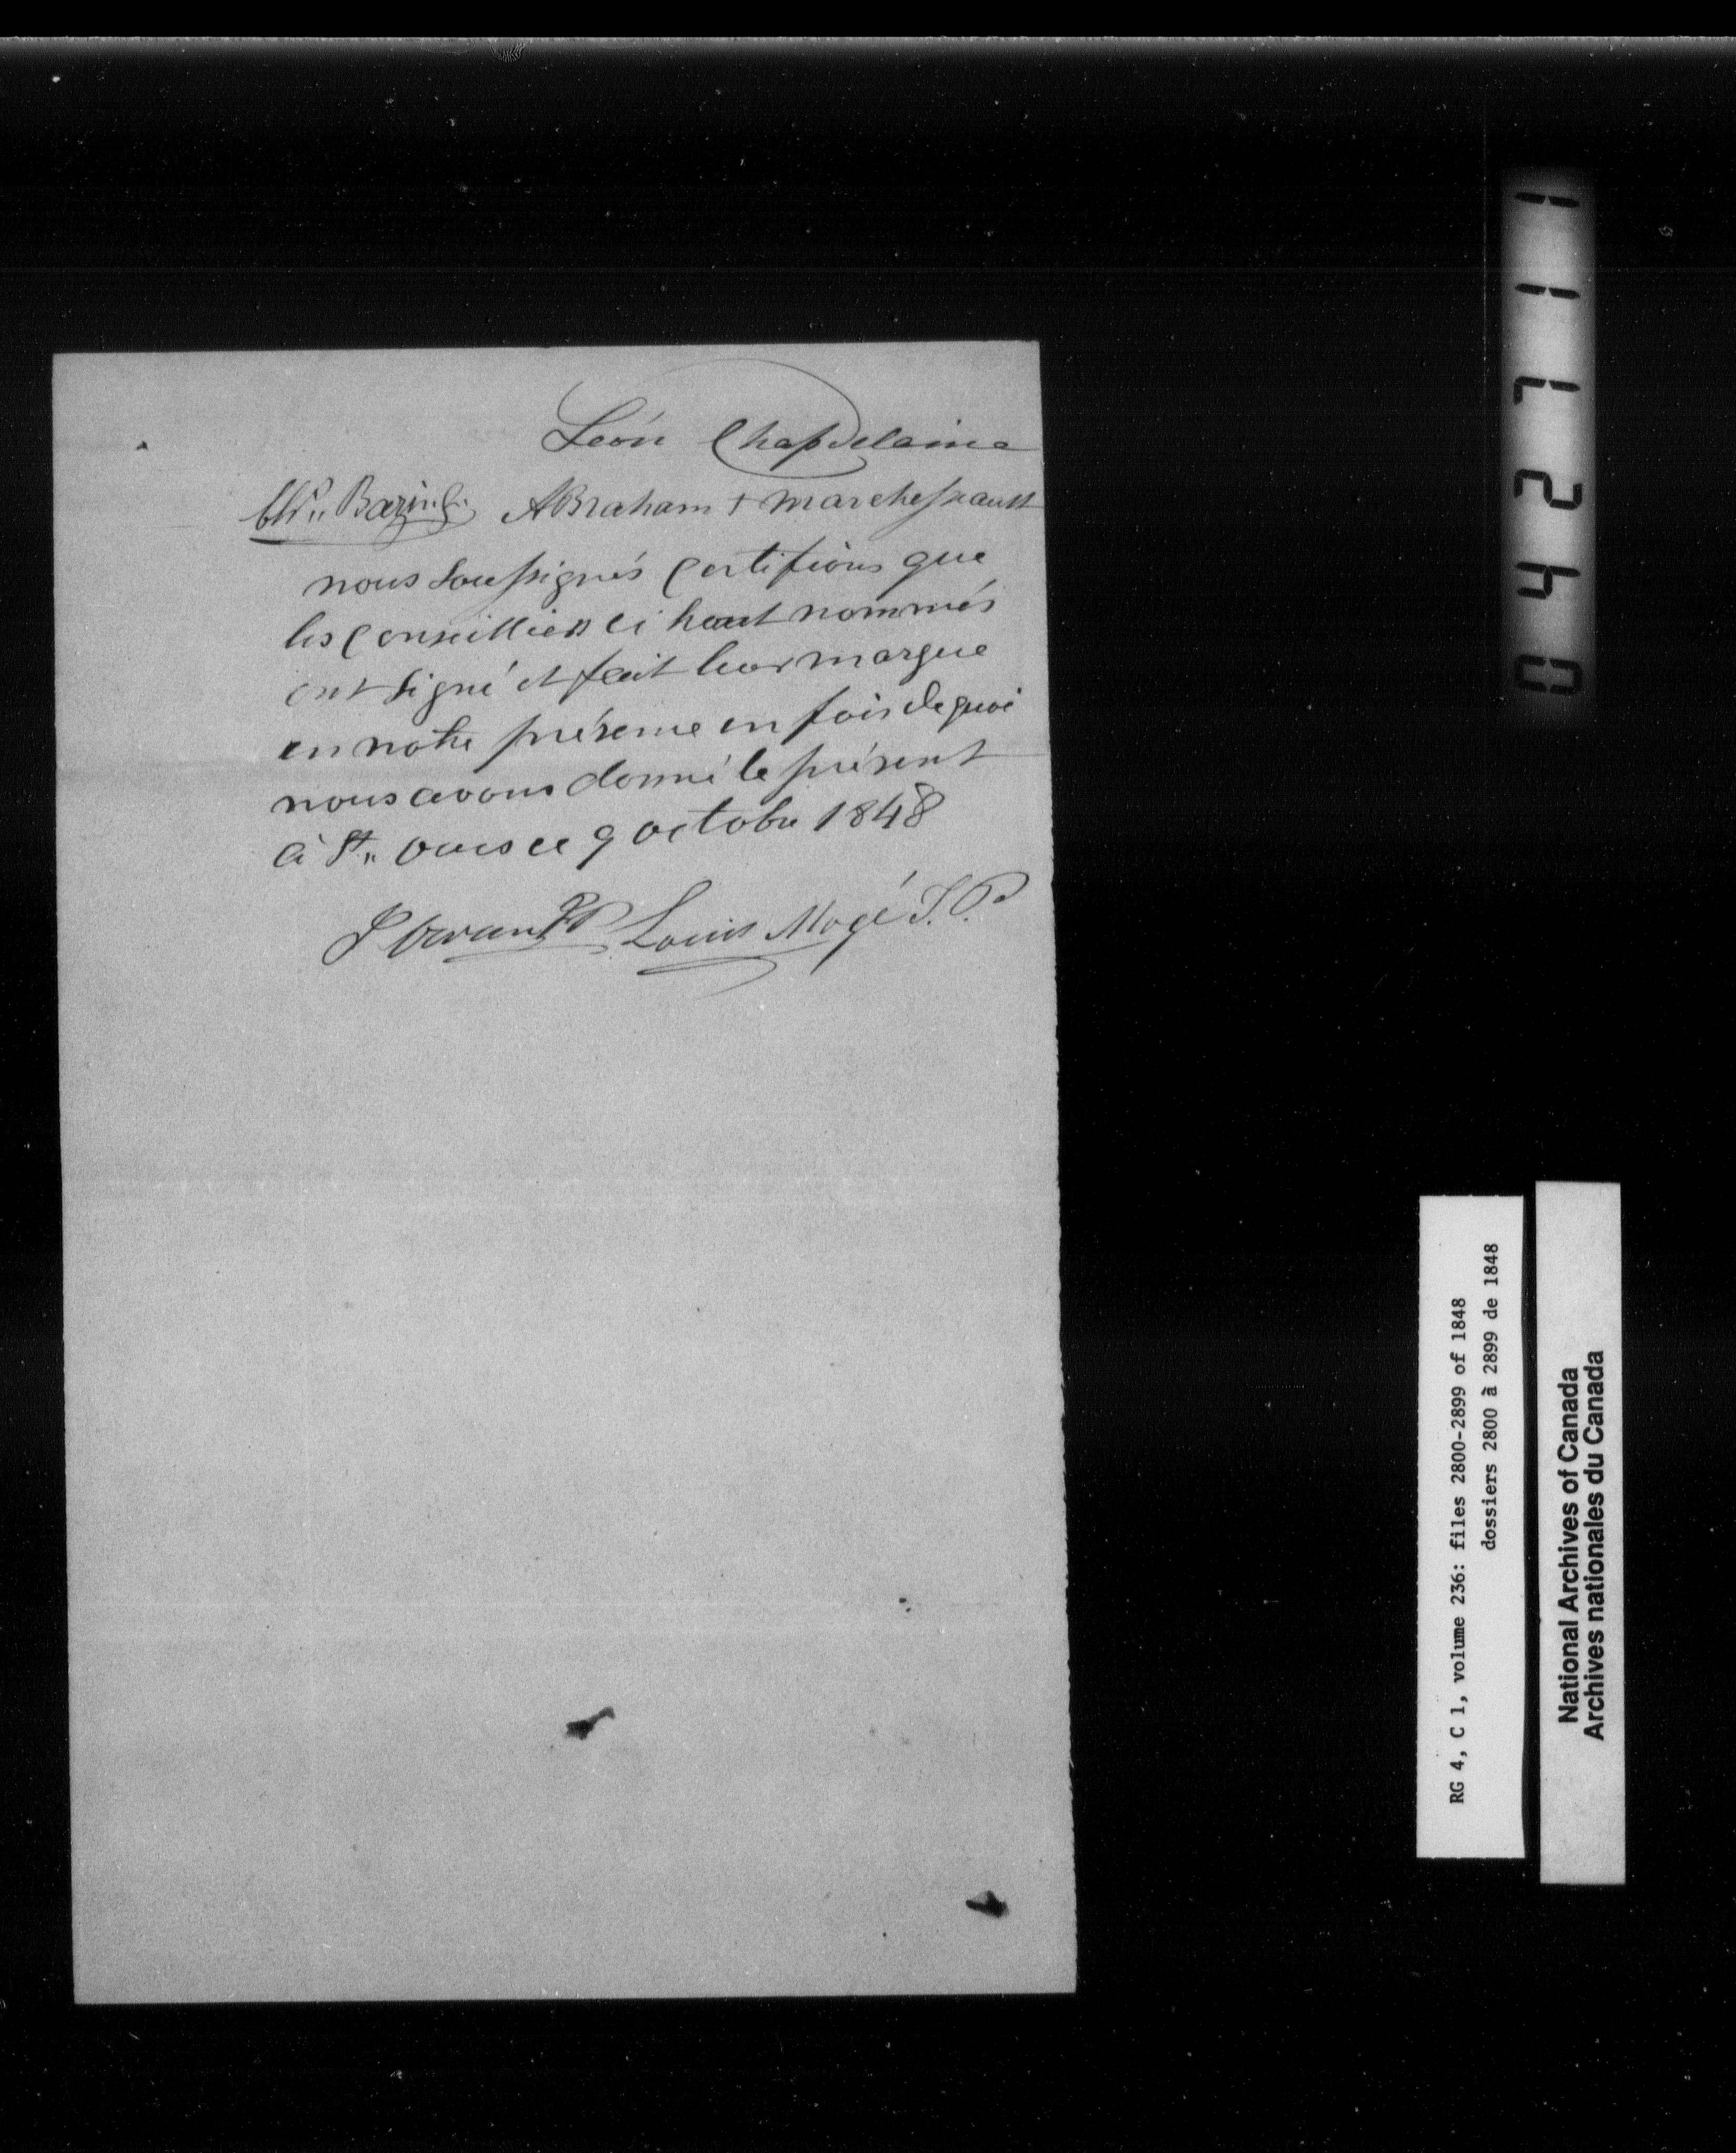 Léon Chapdelaine
Bazin
ABraham + marchesseault
nous soussignés Certifions que
les Conseilliers ci haut nommés
ont signé et fait leur marque
en notre présence en fois de quoi
nous avons donné le présent
à St,, ours ce 9 octobre 1848
Louis Mogé J.P
042711
RG 4, C 1, volume 236: files 2800-2899 of 1848
dossiers 2800 à 2899 de 1848
National Archives of Canada
Archives nationales du Canada